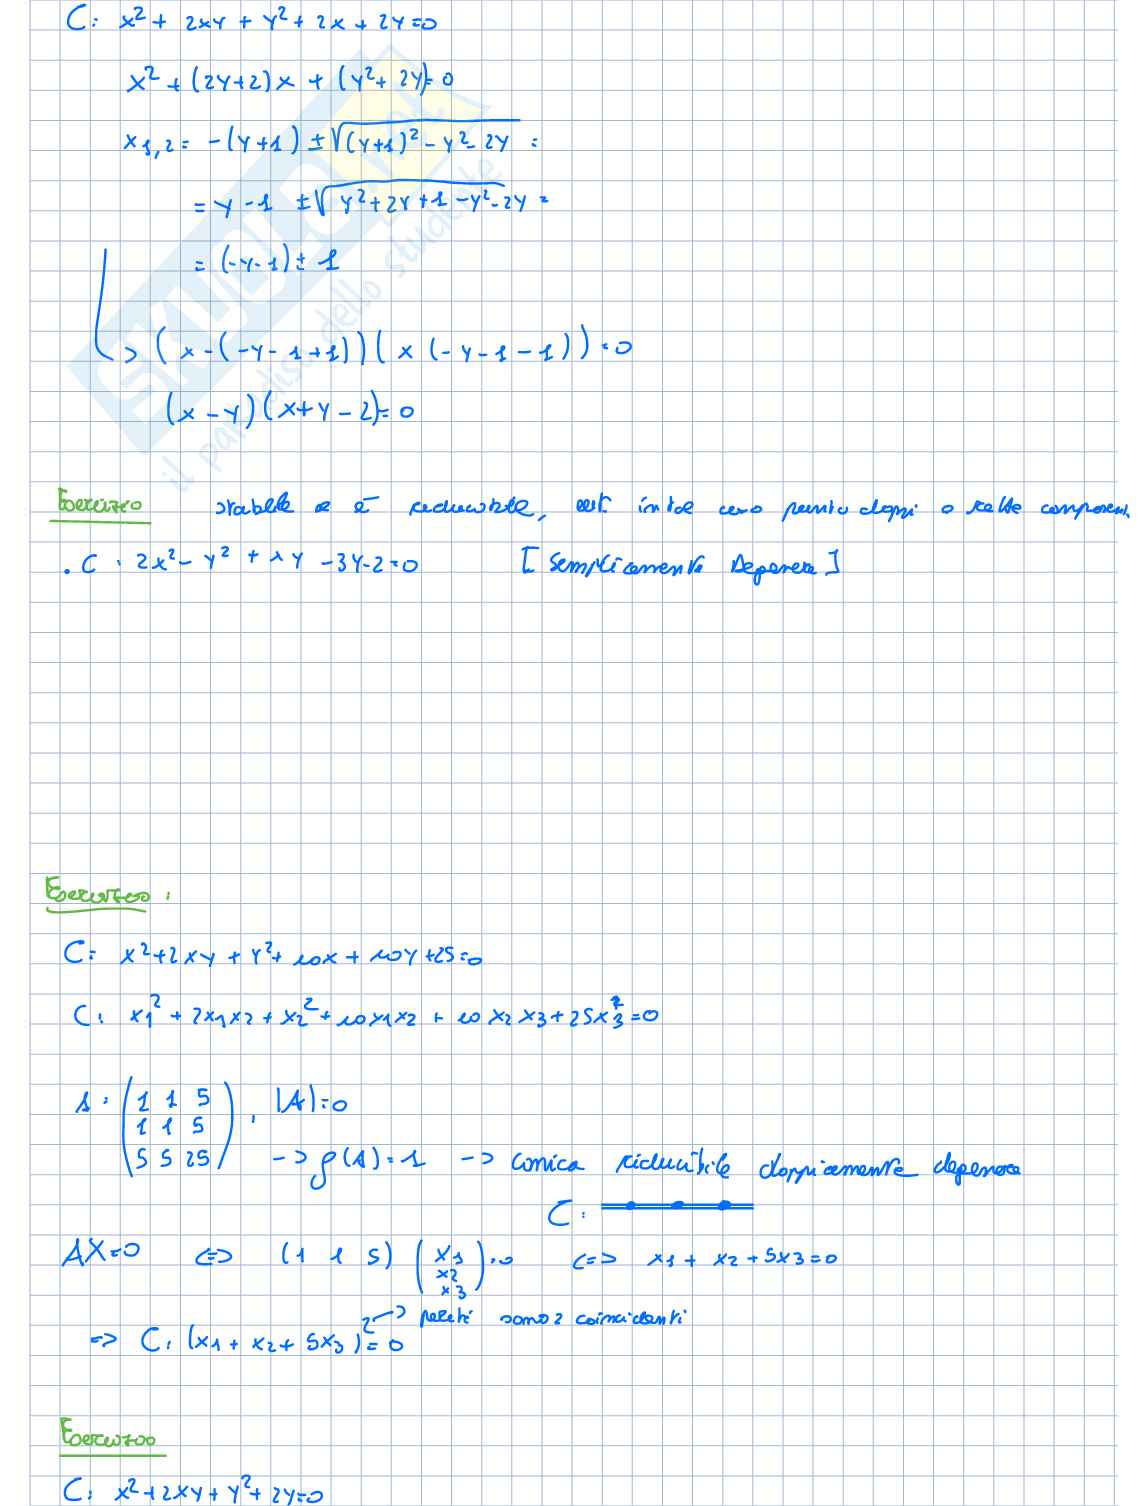 C: x² + 2xy + y² + 2x + 2y = 0
x² + (2y+2)x + (y² + 2y) = 0
x₁,₂ = -(y+1) ± √(y+1)² - y² - 2y =
= y - 1 ± √y² + 2y + 1 - y² - 2y =
= (-y-1) ± 1
-> (x - (-y - 1 + 1)) (x (-y - 1 - 1)) = 0
(x - y) (x + y - 2) = 0
SKUOLA.net
il paradiso dello studente
Esercizio stabilire se è riducibile, punti doppi o rette component.
. C : 2x² - y² + xy - 3y - 2 = 0 [Semplicemente Degenere]
Esercizio :
C: x² + 2xy + y² + 10x + 10y + 25 = 0
C: x₁² + 2x₁x₂ + x₂² + 10x₁x₂ + 10x₂x₃ + 25x₃² = 0
A : (1 1 5 , |A| = 0
1 1 5
5 5 25) -> ρ(A) = 1 -> conica riducibile doppiamente degenere
C :
AX = 0 <=> (1 1 5) (x₁ x₂ x₃) = 0 <=> x₁ + x₂ + 5x₃ = 0
-> perché sono 2 coincidenti
=> C: (x₁ + x₂ + 5x₃)² = 0
Esercizio
C: x² + 2xy + y² + 2y = 0